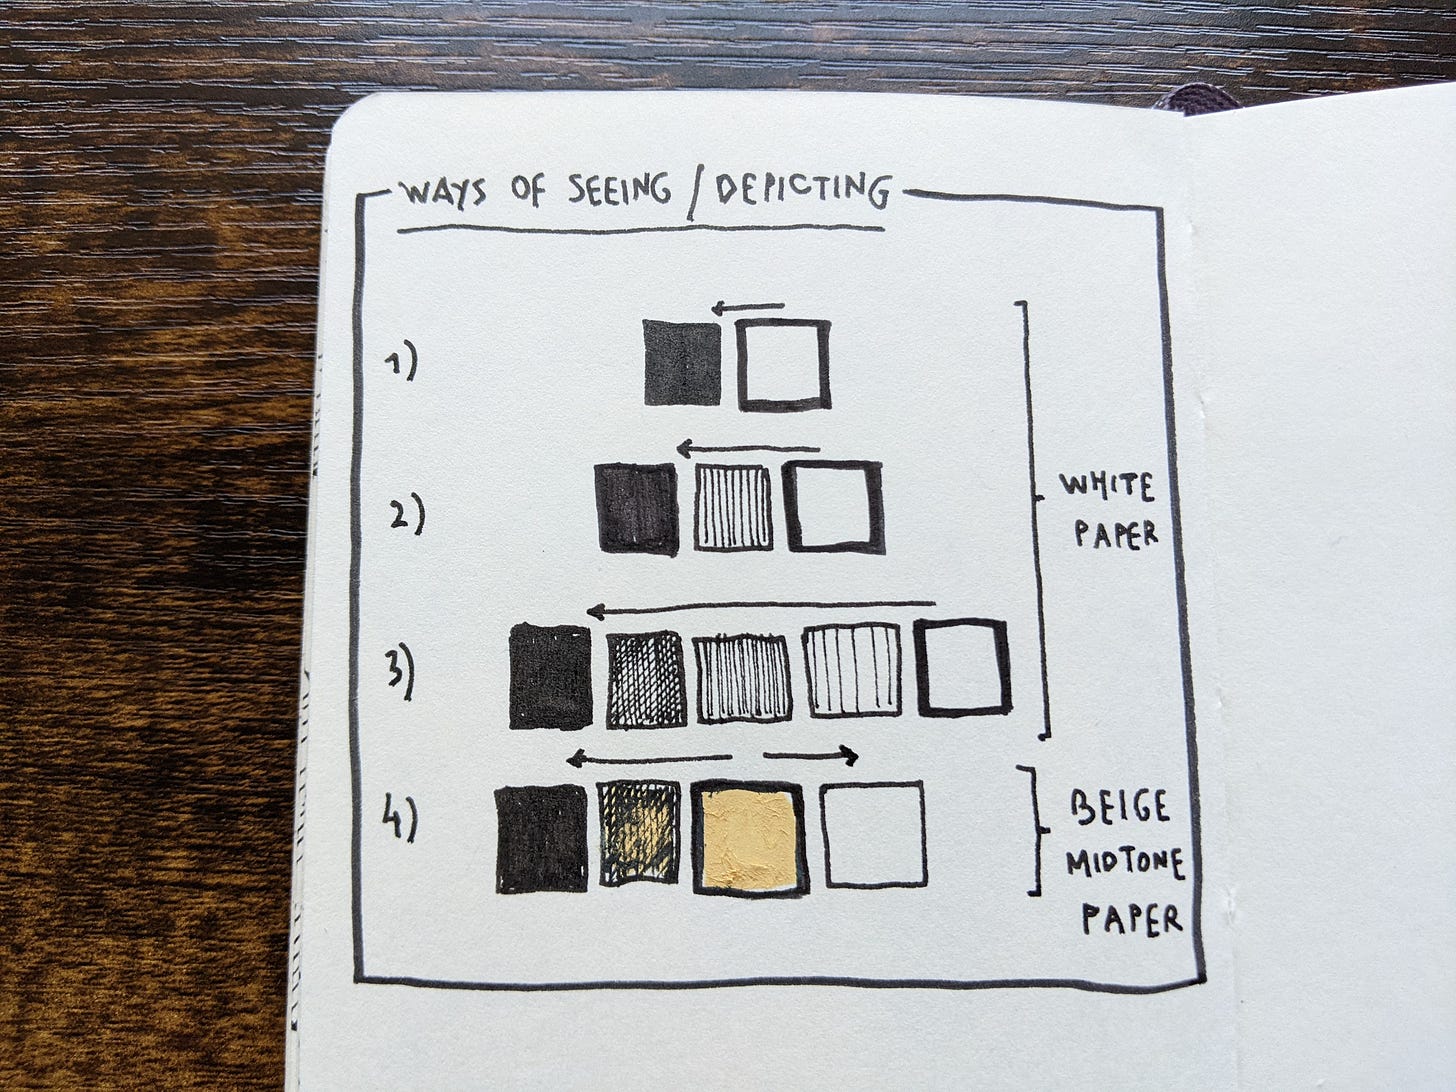 WAYS OF SEEING / DEPICTING
1)
2)
WHITE
PAPER
3)
4)
BEIGE
MIDTONE
PAPER